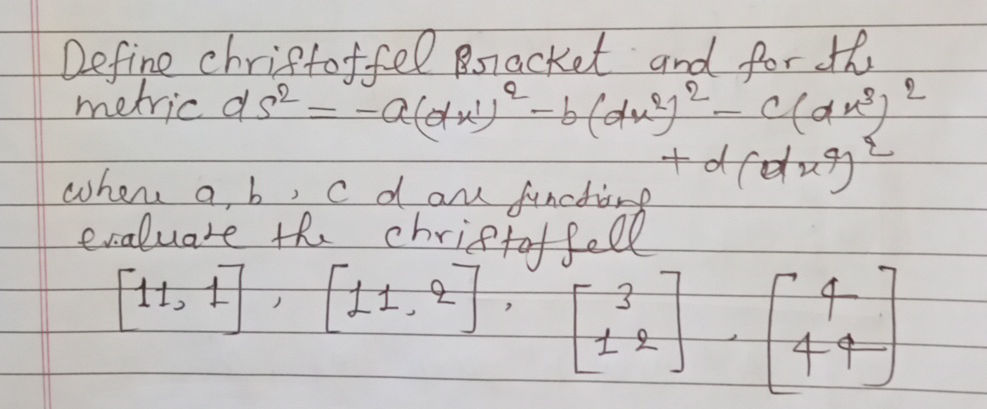 Define christoffel Bracket and for the
metric ds² = -a(dx¹)² - b(dx²)² - c(dx³)²
+ d(dx⁴)²
where a, b, c d are functions
evaluate the christoffell
[11, 1], [11, 2], [3
12], [4
44]